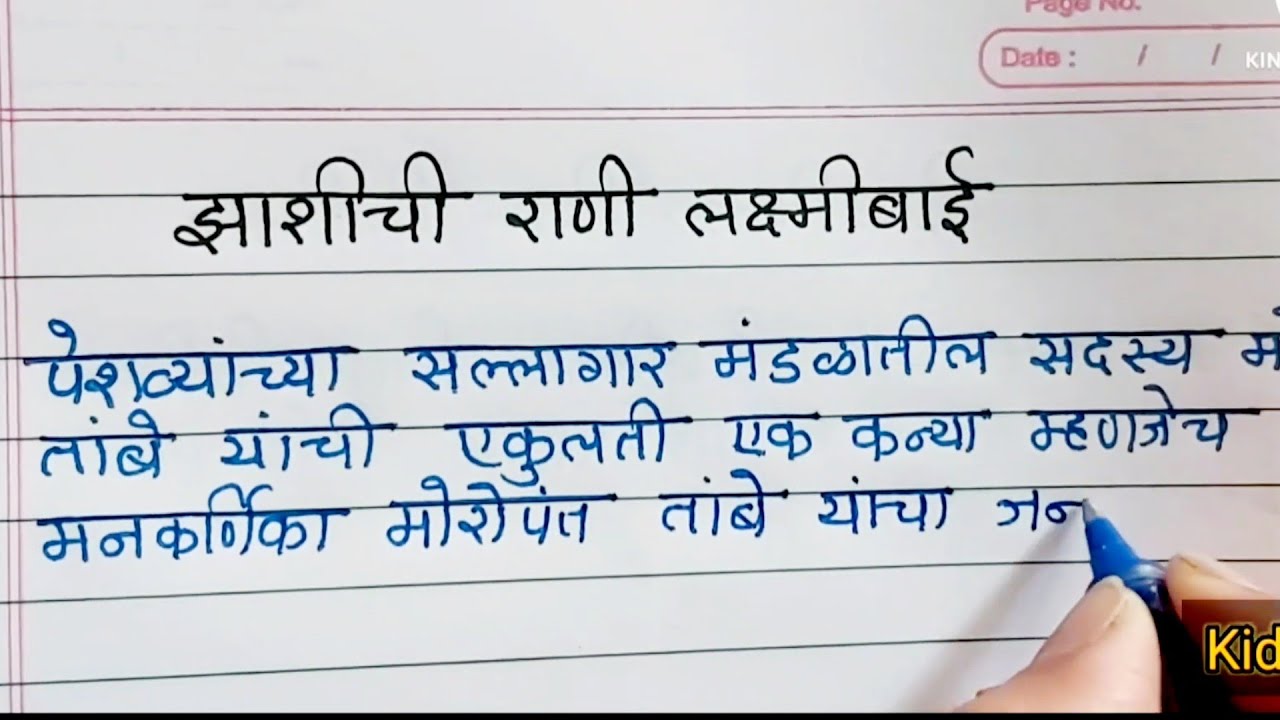 Page No.
Date : / /
KIN
झाशीची राणी लक्ष्मीबाई
पेशव्यांच्या सल्लागार मंडळातील सदस्य
तांबे यांची एकुलती एक कन्या म्हणजेच
मनकर्णिका मोरोपंत तांबे यांचा जन
Kid